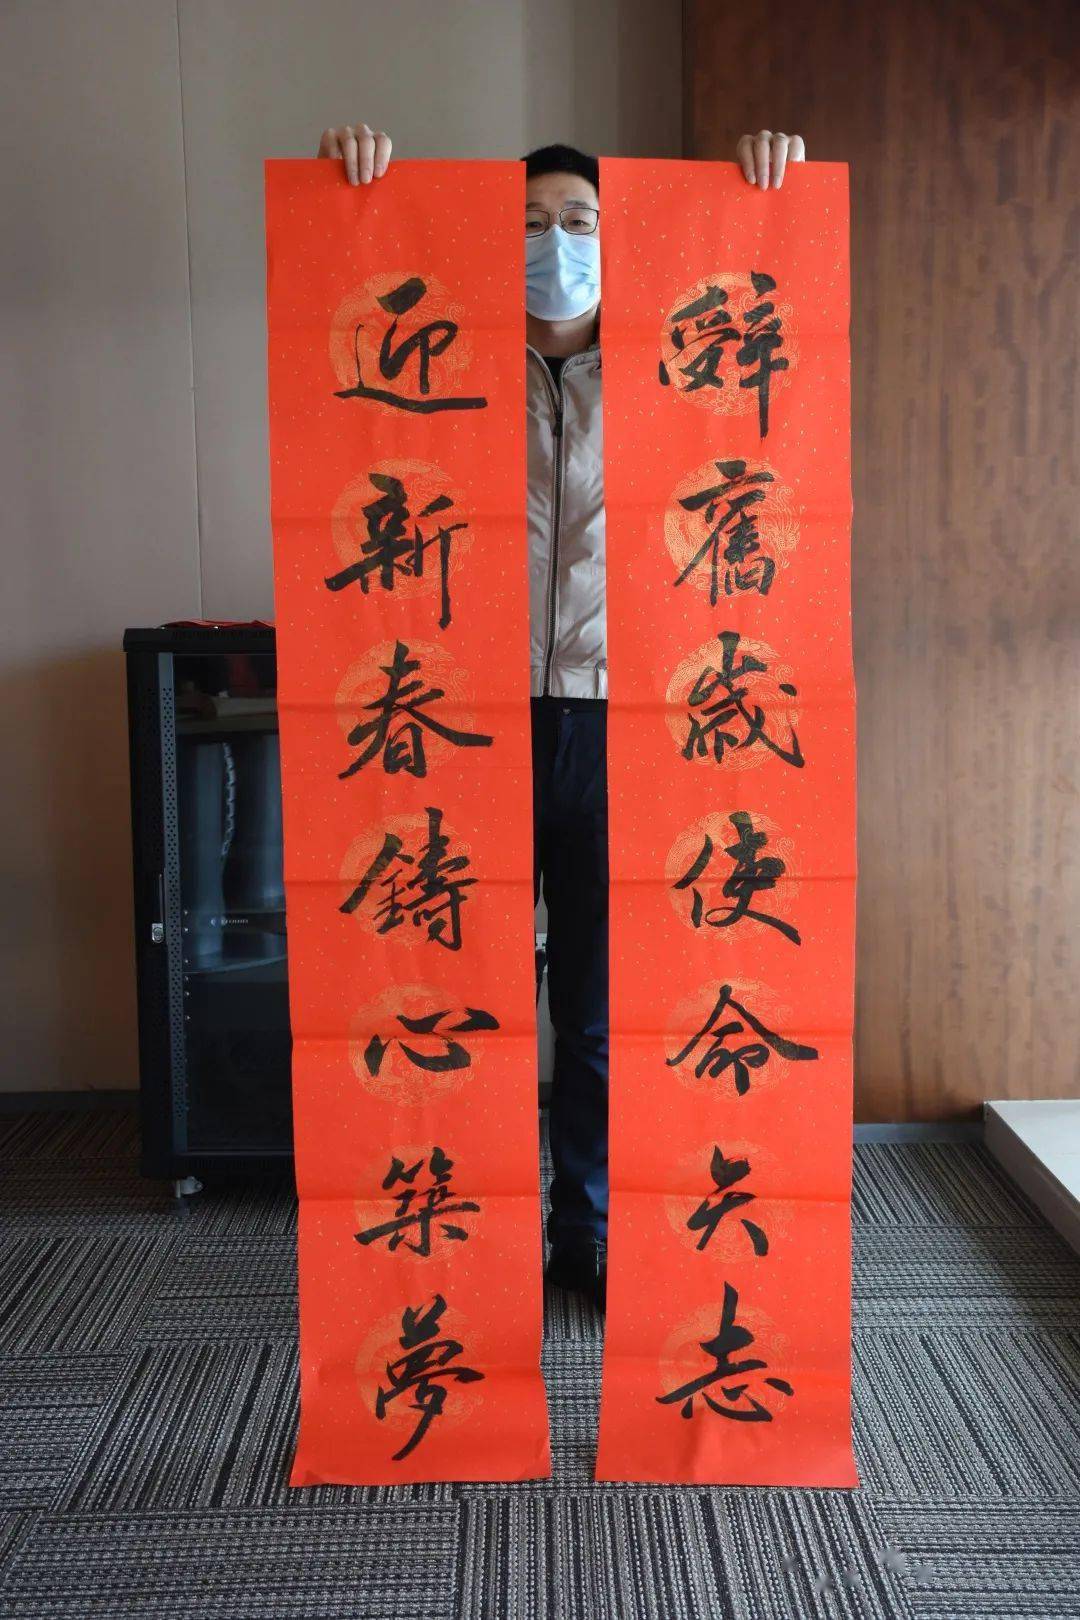 辭舊歲使命矢志
迎新春鑄心築夢